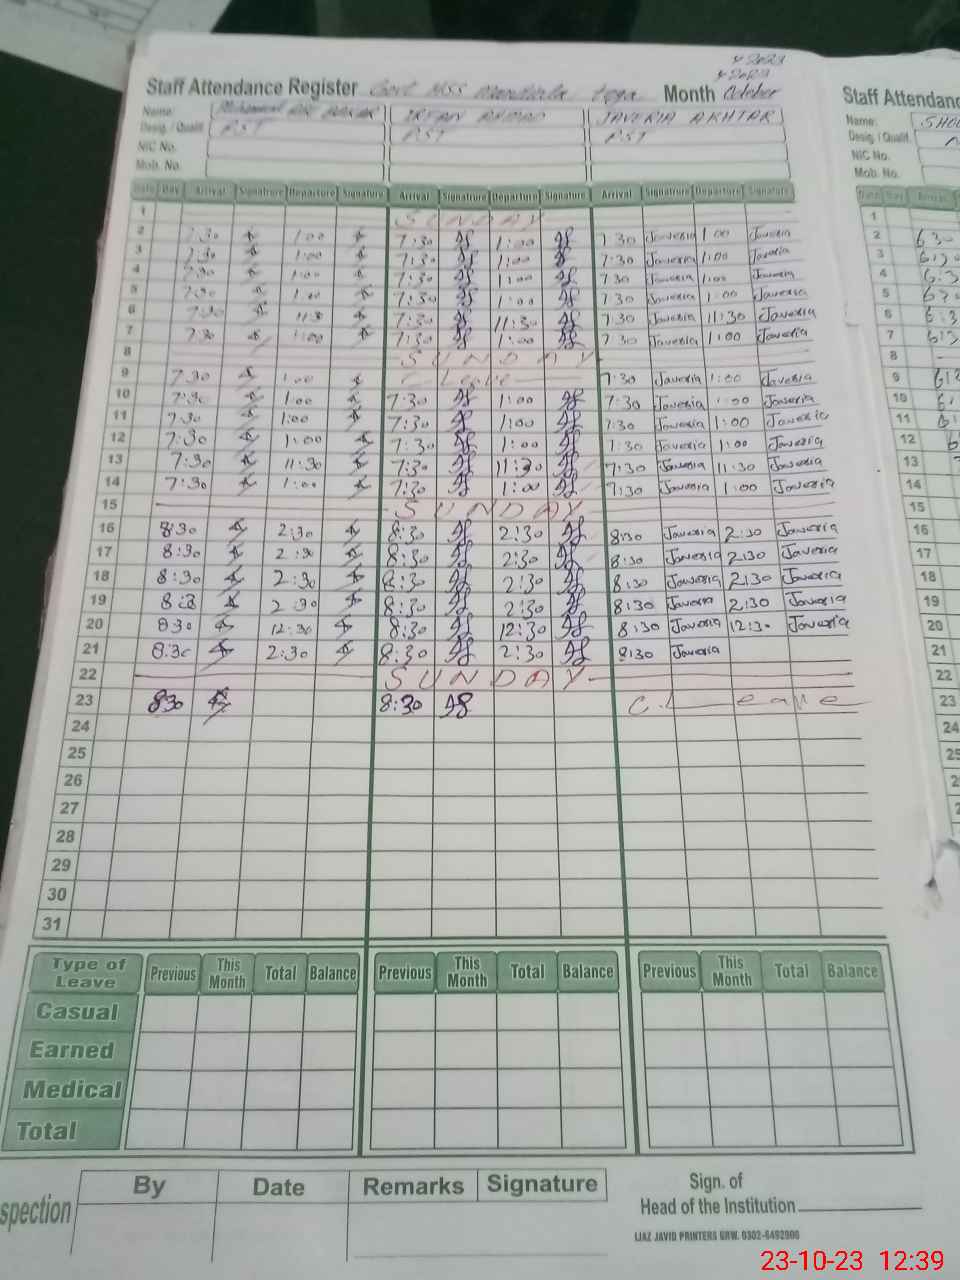 y 2023
y 2023
Staff Attendance Register Govt MSS Month October
Name: Muhammad Abu Bakar IRFAN AHMAD JAVERIA AKHTAR
Desig. / Qualif. PST PST PST
NIC No.
Mob. No.
Date Day Arrival Signatrure Departure Signature Arrival Signatrure Departure Signature Arrival Signatrure Departure Signature
1 SUNDAY
2 7:30 1:00 7:30 1:00 7:30 Javeria 1:00 Javeria
3 7:30 1:00 7:30 1:00 7:30 Javeria 1:00 Javeria
4 7:30 1:00 7:30 1:00 7:30 Javeria 1:00 Javeria
5 7:30 1:00 7:30 1:00 7:30 Javeria 1:00 Javeria
6 7:30 11:30 7:30 11:30 7:30 Javeria 11:30 Javeria
7 7:30 1:00 7:30 1:00 7:30 Javeria 1:00 Javeria
8 SUNDAY
9 7:30 1:00 C Leave 7:30 Javeria 1:00 Javeria
10 7:30 1:00 7:30 1:00 7:30 Javeria 1:00 Javeria
11 7:30 1:00 7:30 1:00 7:30 Javeria 1:00 Javeria
12 7:30 1:00 7:30 1:00 7:30 Javeria 1:00 Javeria
13 7:30 11:30 7:30 11:30 7:30 Javeria 11:30 Javeria
14 7:30 1:00 7:30 1:00 7:30 Javeria 1:00 Javeria
15 SUNDAY
16 8:30 2:30 8:30 2:30 8:30 Javeria 2:30 Javeria
17 8:30 2:30 8:30 2:30 8:30 Javeria 2:30 Javeria
18 8:30 2:30 8:30 2:30 8:30 Javeria 2:30 Javeria
19 8:3 2:30 8:30 2:30 8:30 Javeria 2:30 Javeria
20 830 12:30 8:30 12:30 8:30 Javeria 12:30 Javeria
21 8:30 2:30 8:30 2:30 8:30 Javeria
22 SUNDAY
23 830 8:30 C.Leave
24
25
26
27
28
29
30
31
Type of Leave Previous This Month Total Balance Previous This Month Total Balance Previous This Month Total Balance
Casual
Earned
Medical
Total
spection By Date Remarks Signature
Sign. of
Head of the Institution
IJAZ JAVID PRINTERS GRW. 0302-6492906
Staff Attendanc
Name: SHO
Desig. / Qualif.
NIC No.
Mob. No.
1
2 6:30
3 6:30
4 6:3
5 6:3
6 6:3
7 6:3
8
9
10
11
12
13
14
15
16
17
18
19
20
21
22
23
24
25
23-10-23 12:39